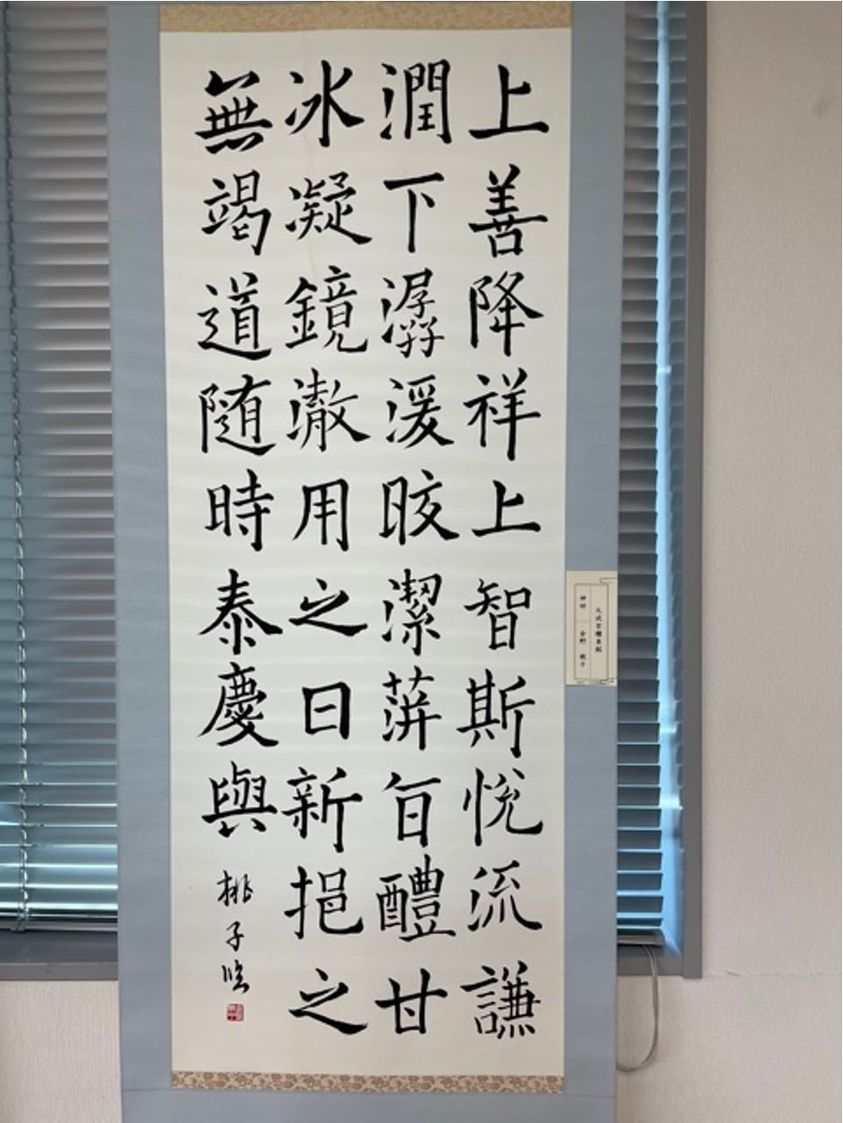 上善降祥上智斯悅流謙
潤下潺湲晈潔蓱旨醴甘
冰凝鏡澈用之日新挹之
無竭道随時泰慶與
桃子臨
九成宮醴泉銘
桃子